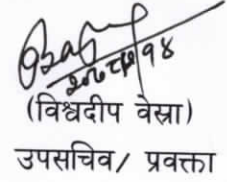 (विश्वदीप वेस्रा)
उपसचिव/ प्रवक्ता